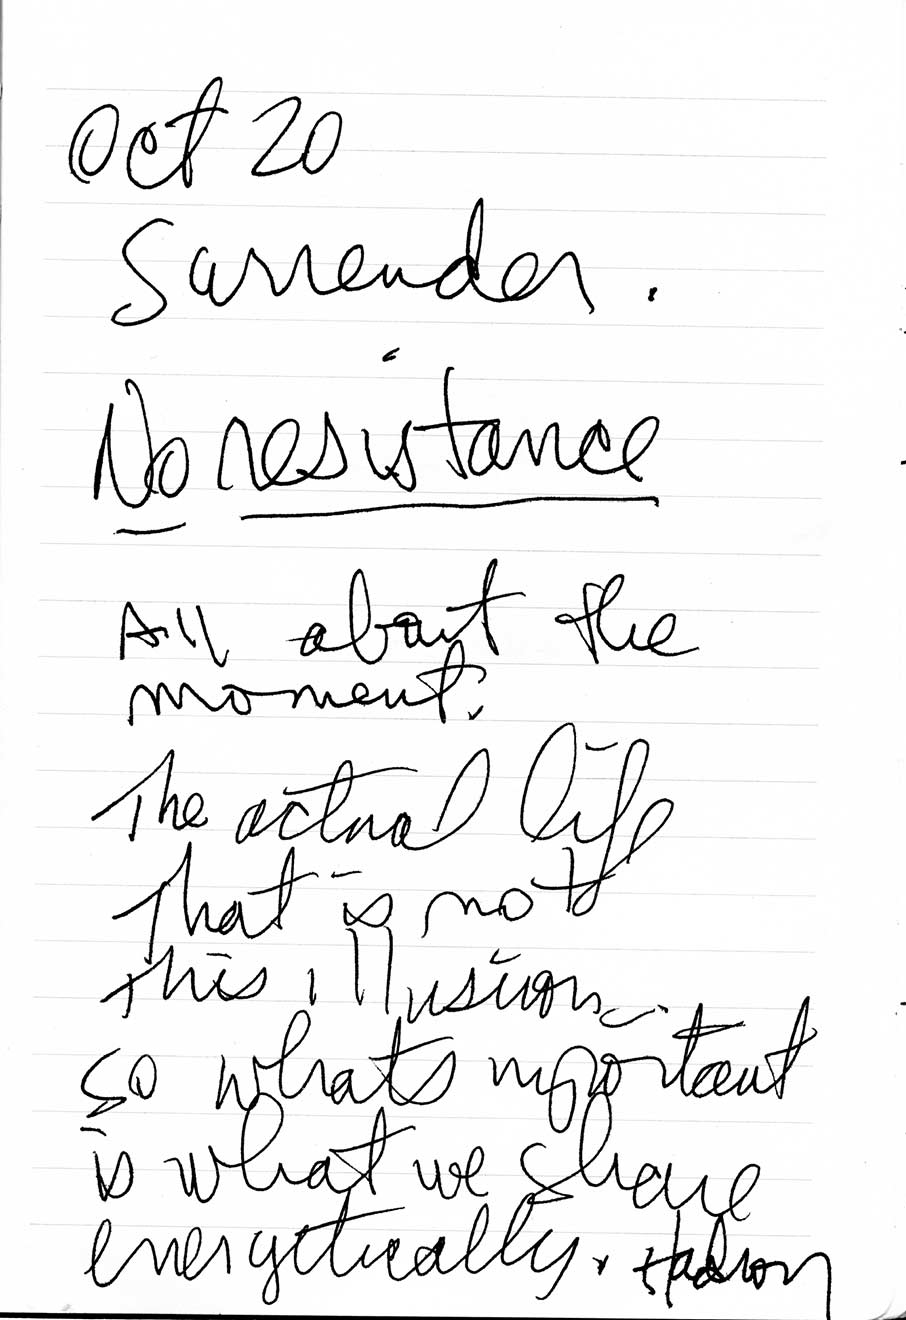 Oct 20
Surrender.
No resistance
All about the
moment.
The actual life
That is not
this illusion.
so what's mportant
is what we share
energetically.